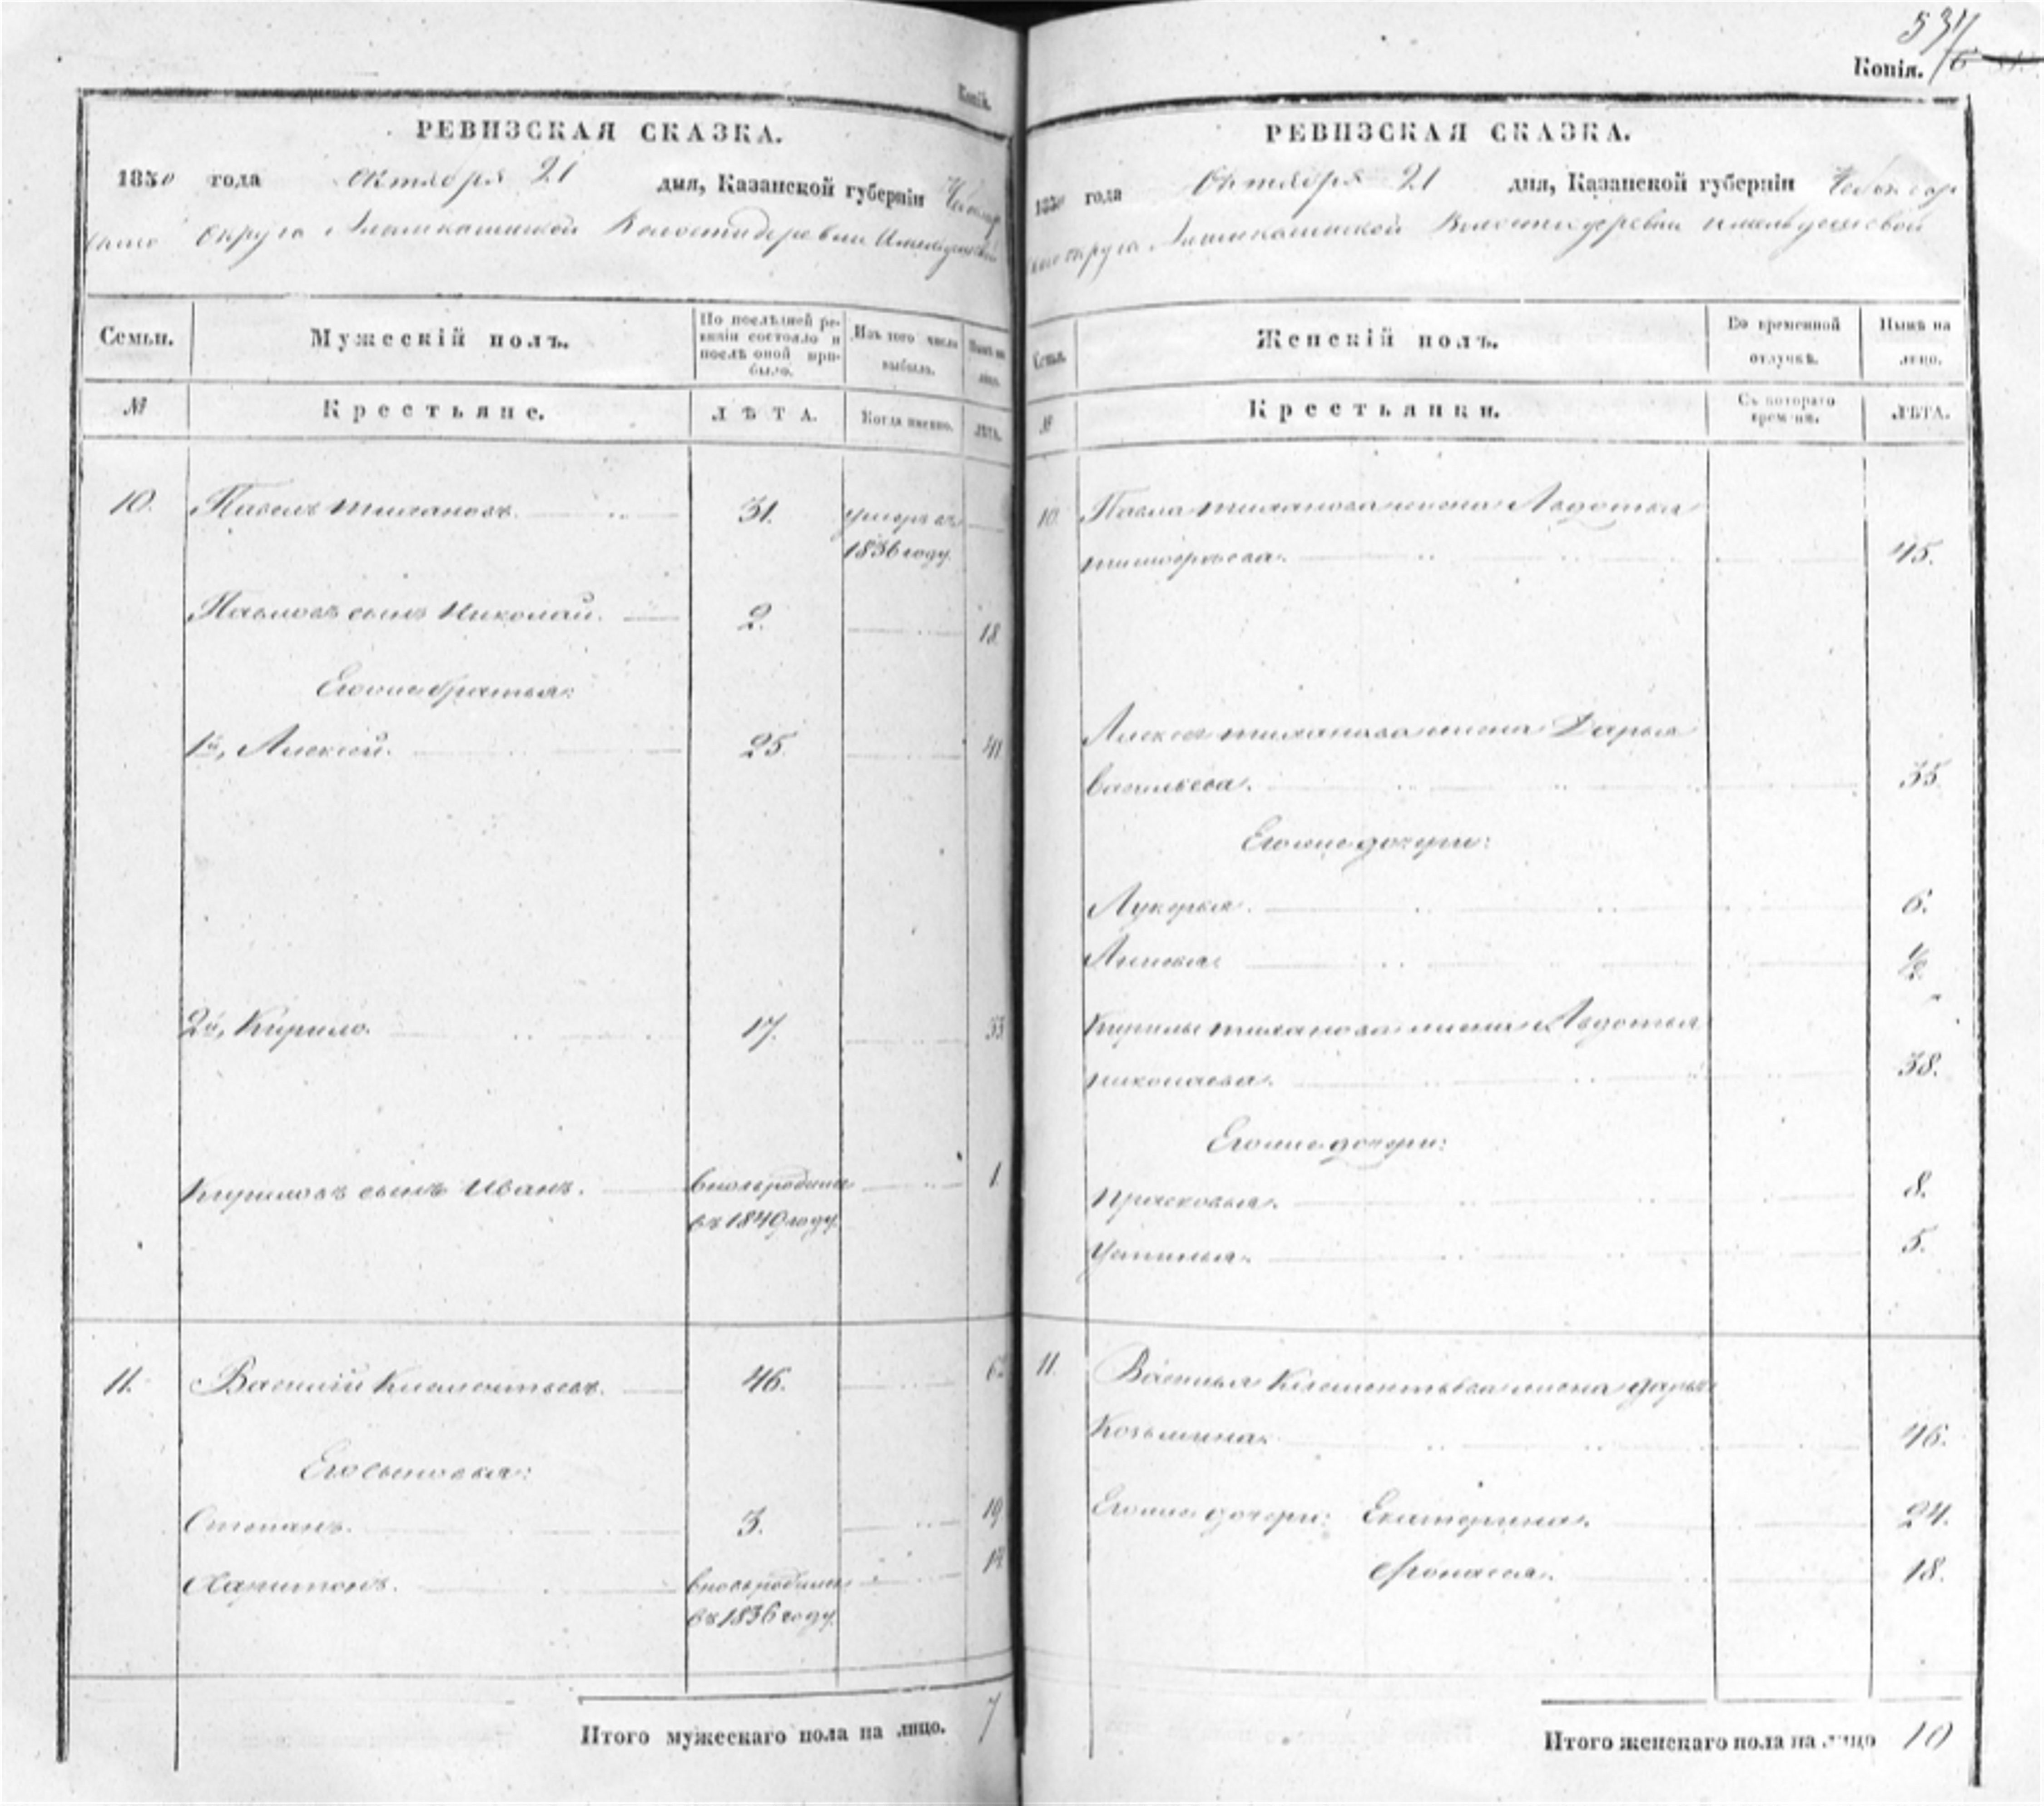 Копія.
РЕВИЗСКАЯ СКАЗКА.
1850 года Октября 21 дня, Казанской губерніи Чебоксар
скаго округа Волости деревни
Семьи.
Мужескій полъ.
По послѣдней ре-
визіи состояло и
послѣ оной при-
было.
Изъ того числа
выбыло.
Нынѣ на
лицо.
№
Крестьяне.
ЛѢТА.
Когда именно.
ЛѢТА.
10. Павелъ тихановъ. 31. умеръ въ
1836 году.
Павловъ сынъ Николай. 2. 18.
Егоже братья:
1й, Алексѣй. 25. 41
2й, Кирило. 17. 33
Кириловъ сынъ Иванъ. вновь родился 1
въ 1849 году.
11. Василій Клементьевъ. 46. 62
Его сыновья:
Степанъ. 3. 19
Харитонъ. вновь родился 14
въ 1836 году.
Итого мужескаго пола на лицо. 7
534
Копія.
РЕВИЗСКАЯ СКАЗКА.
1850 года Октября 21 дня, Казанской губерніи Чебоксар
скаго округа Волости деревни
Семьи.
Женскій полъ.
Во временной
отлучкѣ.
Нынѣ на
лицо.
№
Крестьянки.
Съ котораго
времени.
ЛѢТА.
10. Павла тиханова жена Авдотья
тимофѣева. 45.
Алексѣя тиханова жена Дарья
васильева. 35.
Егоже дочери:
Лукерья. 6.
Анисья. 1/2
Кирилы тиханова жена Авдотья
николаева. 38.
Егоже дочери:
Прасковья. 8.
Устинья. 5.
11. Василья Клементьева жена дарья
Козьмина. 46.
Егоже дочери: Екатерина. 24.
Афонасья. 18.
Итого женскаго пола на лицо 10